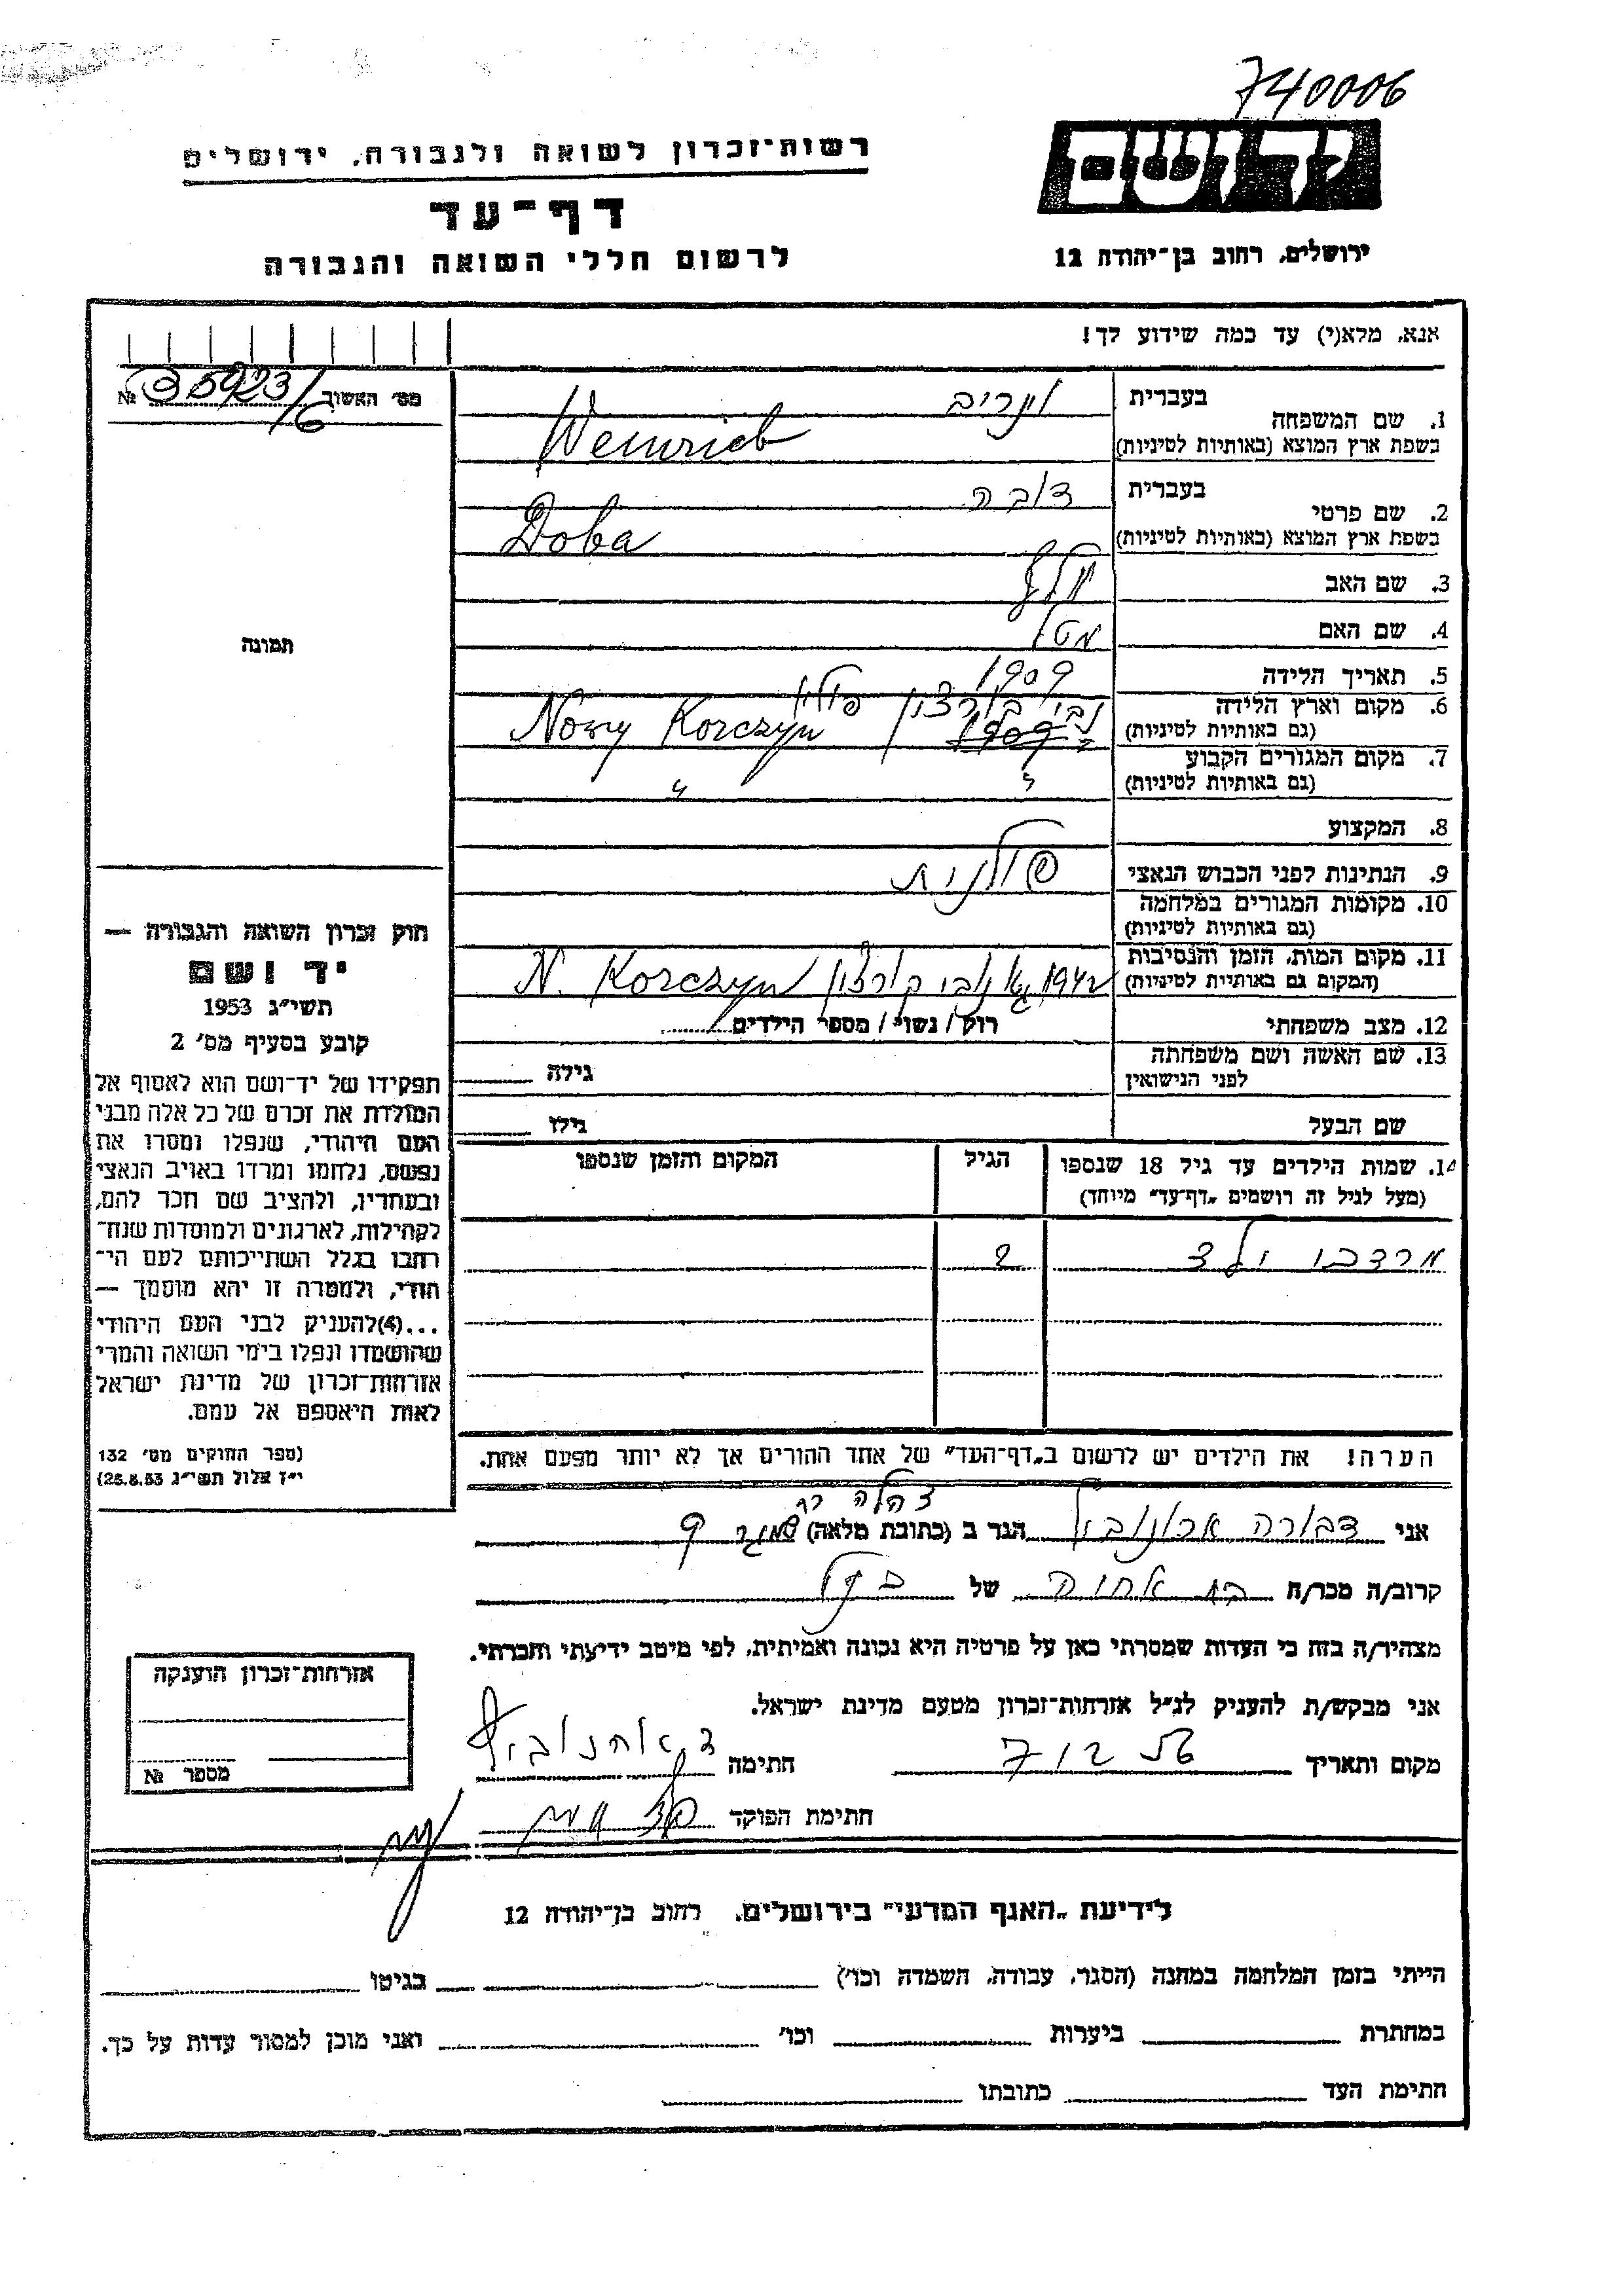 740006
יד ושם
רשות־זכרון לשואה ולגבורה, ירושלים
דף־עד
לרשום חללי השואה והגבורה
ירושלים, רחוב בן־יהודה 12
אנא, מלא(י) עד כמה שידוע לך!
1. שם המשפחה
בעברית וינריב
בשפת ארץ המוצא (באותיות לטיניות) Weinrieb
2. שם פרטי
בעברית דובה
בשפת ארץ המוצא (באותיות לטיניות) Doba
3. שם האב
4. שם האם
5. תאריך הלידה 1909
6. מקום וארץ הלידה פולין
(גם באותיות לטיניות) Nowy Korczyn
7. מקום המגורים הקבוע
(גם באותיות לטיניות) "
8. המקצוע
9. הנתינות לפני הכבוש הנאצי פולנית
10. מקומות המגורים במלחמה
(גם באותיות לטיניות)
11. מקום המות, הזמן והנסיבות
(המקום גם באותיות לטיניות) 1942 N. Korczyn
12. מצב משפחתי רווק / נשוי / מספר הילדים
13. שם האשה ושם משפחתה גילה
לפני הנישואין
שם הבעל גילו
14. שמות הילדים עד גיל 18 שנספו הגיל המקום והזמן שנספו
(מעל לגיל זה רושמים „דף־עד" מיוחד)
מרדכי ולד 2
הערה! את הילדים יש לרשום ב„דף־העד" של אחד ההורים אך לא יותר מפעם אחת.
מס' האשוב № 35923/6
תמונה
חוק זכרון השואה והגבורה —
יד ושם
תשי"ג 1953
קובע בסעיף מס' 2
תפקידו של יד־ושם הוא לאסוף אל
המולדת את זכרם של כל אלה מבני
העם היהודי, שנפלו ומסרו את
נפשם, נלחמו ומרדו באויב הנאצי
ובעוזריו, ולהציב שם וזכר להם,
לקהילות, לארגונים ולמוסדות שנח־
רבו בגלל השתייכותם לעם הי־
הודי, ולמטרה זו יהא מוסמך —
...(4) להעניק לבני העם היהודי
שהושמדו ונפלו בימי השואה והמרי
אזרחות־זכרון של מדינת ישראל
לאות היאספם אל עמם.
(ספר החוקים מס' 132
י"ז אלול תשי"ג 25.8.53)
אני דבורה הגר ב (כתובת מלאה)
קרוב/ה מכר/ה של
מצהיר/ה בזה כי העדות שמסרתי כאן על פרטיה היא נכונה ואמיתית, לפי מיטב ידיעתי והכרתי.
אני מבקש/ת להעניק לנ"ל אזרחות־זכרון מטעם מדינת ישראל.
מקום ותאריך חתימה
חתימת הפוקד
אזרחות־זכרון הוענקה
מספר №
לידיעת „האגף המדעי" בירושלים, רחוב בן־יהודה 12
הייתי בזמן המלחמה במחנה (הסגר, עבודה, השמדה וכו') בגיטו
במחתרת ביערות וכו' ואני מוכן למסור עדות על כך.
חתימת העד כתובתו